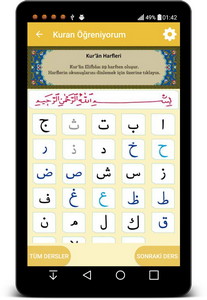 49% 01:42
Kuran Öğreniyorum
Kur'ân Harfleri
Kur'ân Elifbâsı 29 harften oluşur.
Harflerin okunuşlarını dinlemek için üzerine tıklayın.
بِسْمِ اللّٰهِ الرَّحْمٰنِ الرَّحِيمِ
ا ب ت ث ج
ح خ د ذ ر
ز س ش ص ض
ط ظ ع غ ف
ق ك ل م ن
TÜM DERSLER SONRAKİ DERS